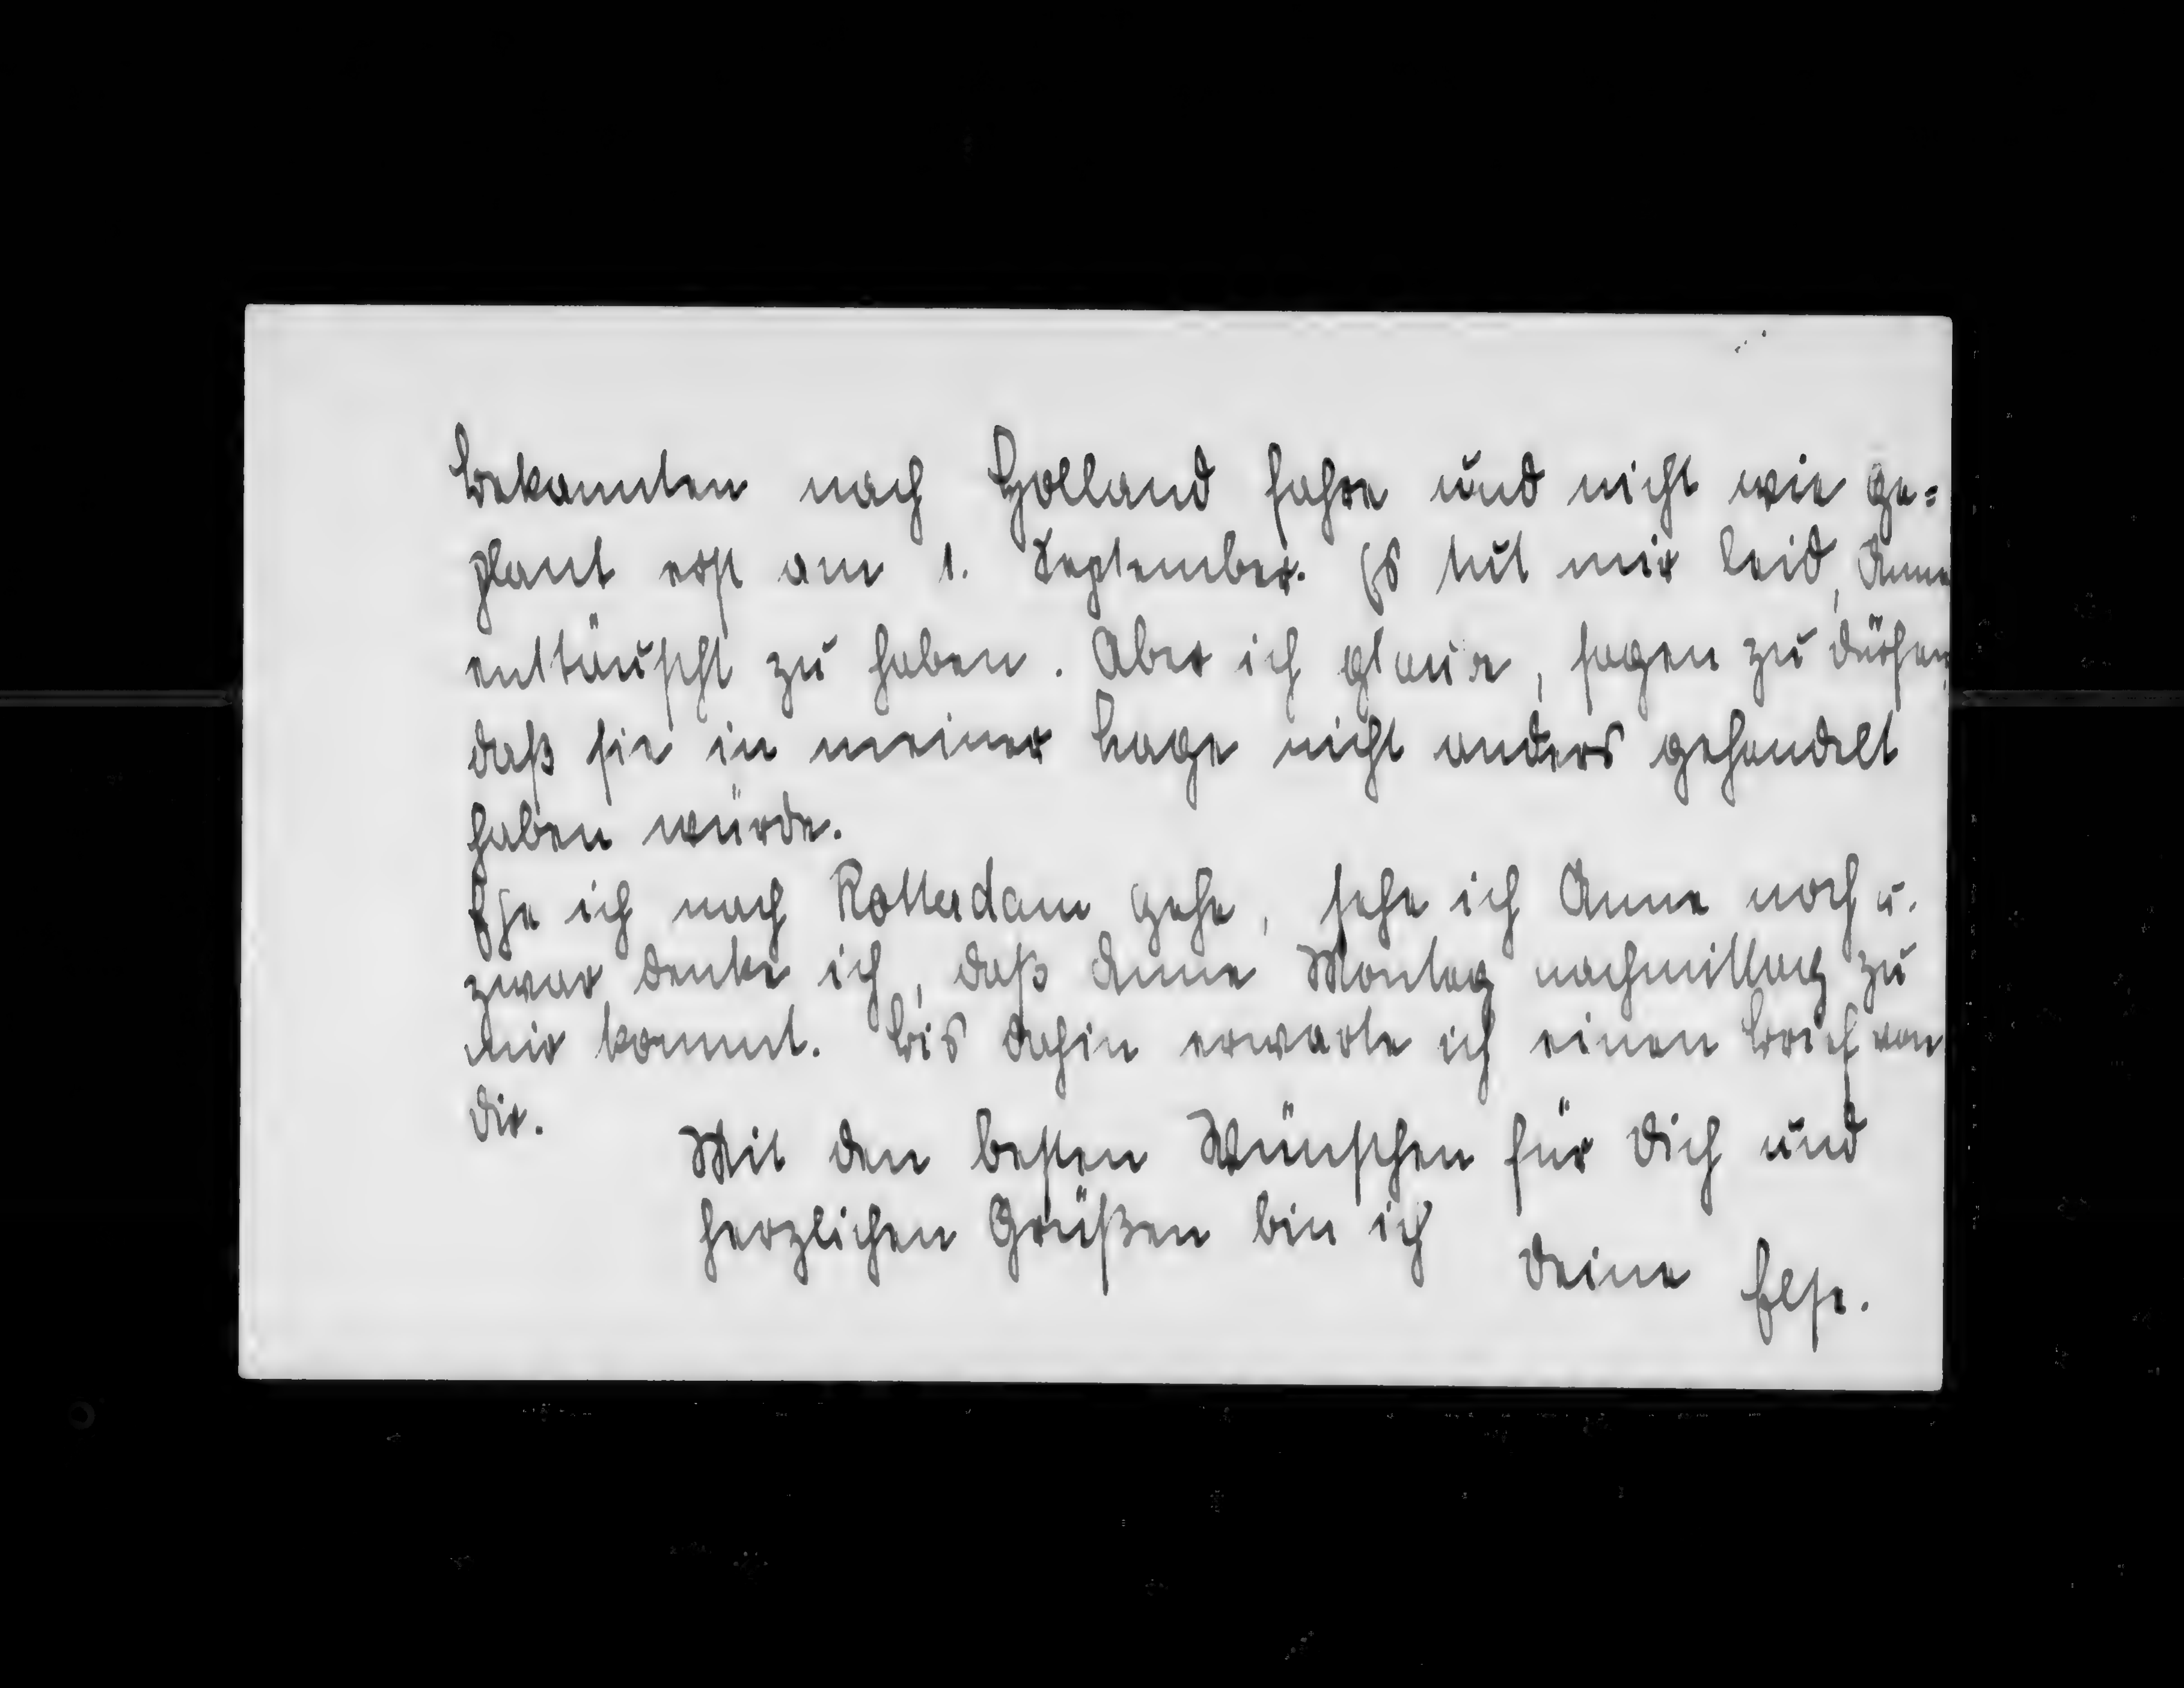 Bekannten nach Holland fahre und nicht wie ge=
plant erst am 1. September. Es tut mir leid, Anne
enttäuscht zu haben. Aber ich glaube, sagen zu dürfen,
daß sie in meiner Lage nicht anders gehandelt
haben würde.
Ehe ich nach Rotterdam gehe, sehe ich Anne noch u.
zwar denke ich, daß Anne Montag nachmittag zu
mir kommt. Bis dahin erwarte ich einen Brief von
Dir.
Mit den besten Wünschen für Dich und
herzlichen Grüßen bin ich
Deine Else.